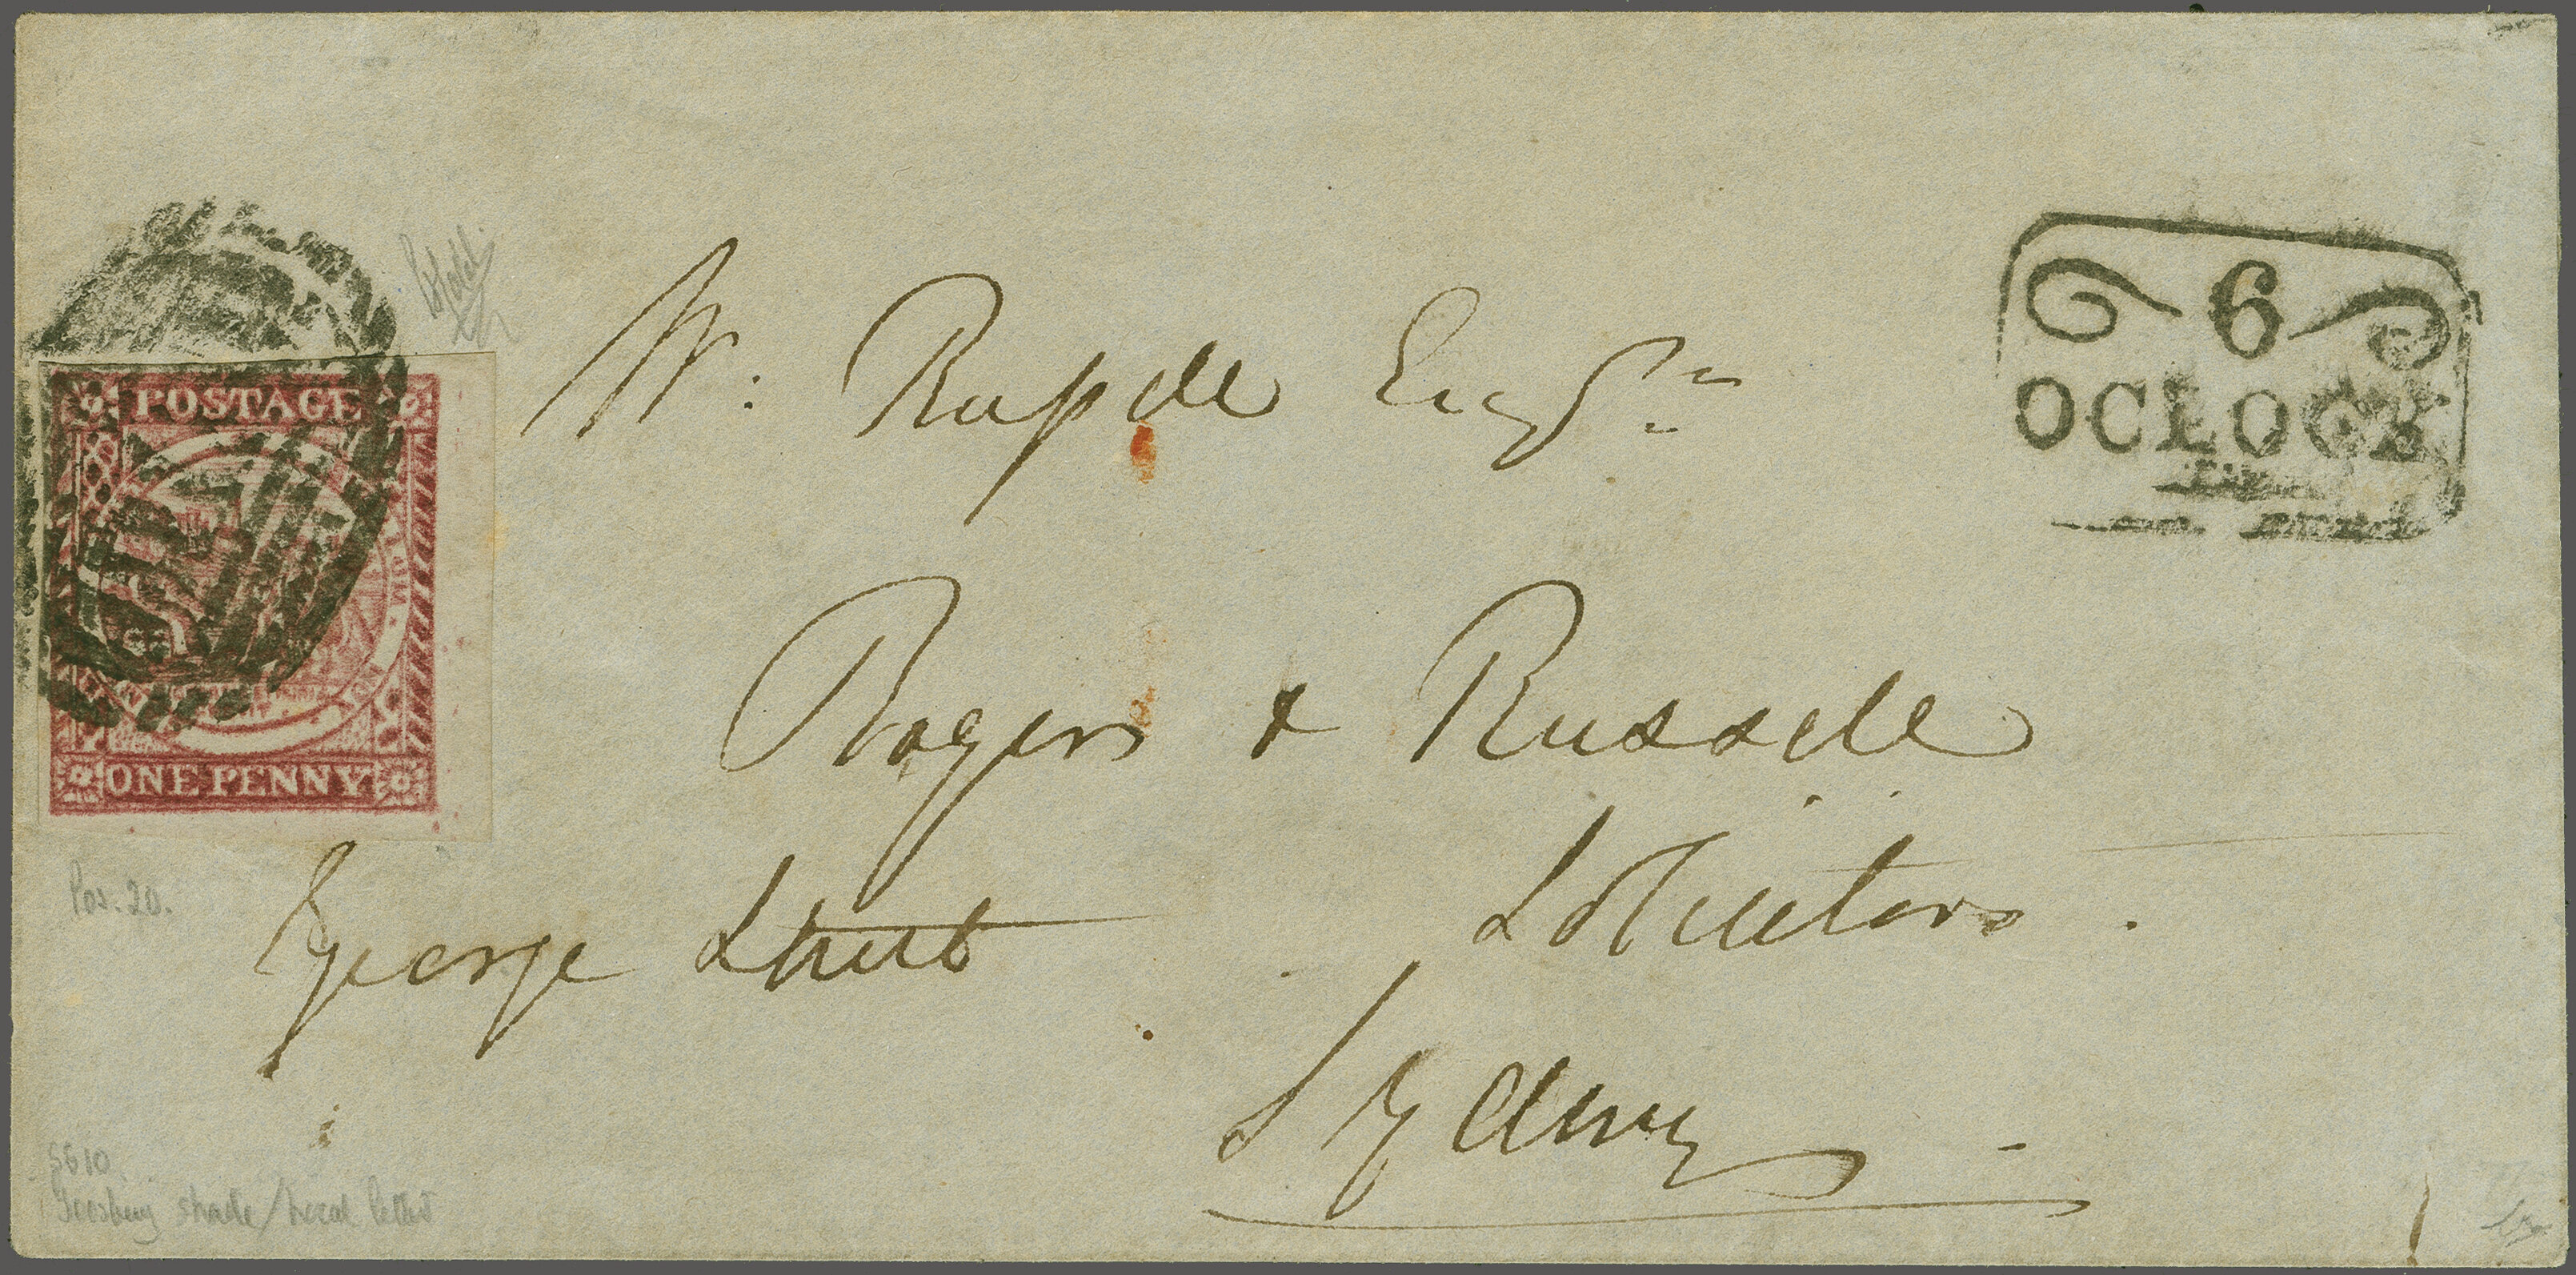 POSTAGE
ONE PENNY
6
OCLOCK
W: Rusſell Esqre
Rogers & Russell
Solicitors.
George Street
Sydney
Pos. 20.
SG 10
Gooseberry shade/Local letter